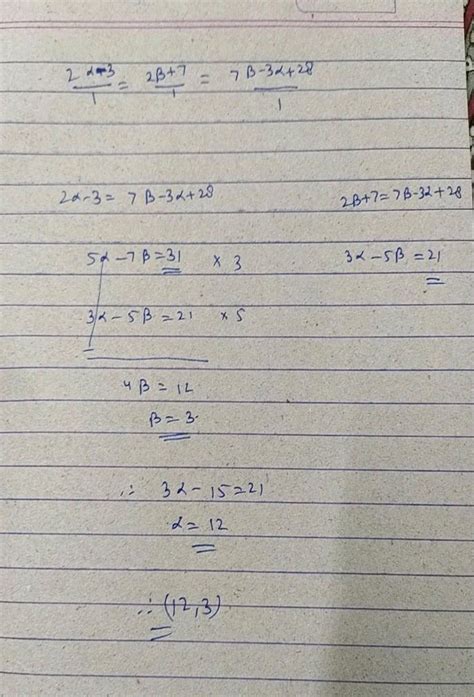 2α-3/1 = 2β+7/1 = 7β-3α+28/1
2α-3 = 7β-3α+28 2β+7=7β-3α+28
5α-7β=31 × 3 3α-5β=21
3α-5β=21 × 5
4β=12
β=3
∴ 3α-15=21
α=12
∴ (12,3)